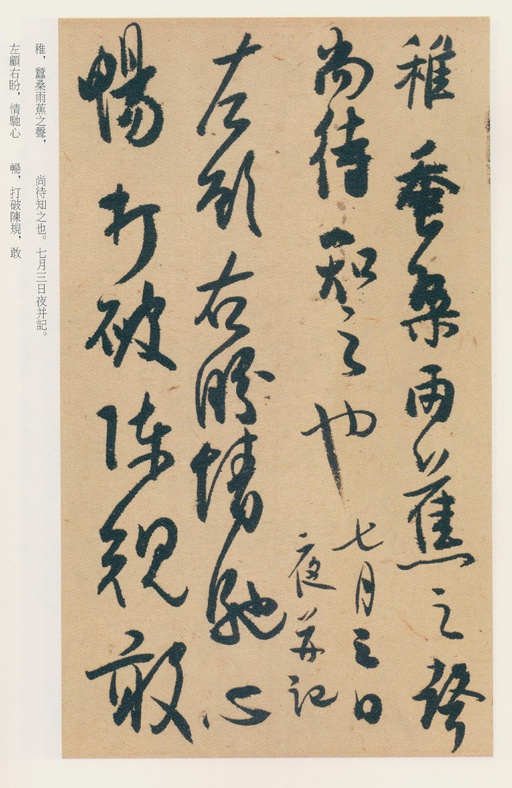 稚蚕桑雨蕉之聲
尚待知之也
七月三日
夜并記
左顾右盼情馳心
暢打破陳規敢
稚，蠶桑雨蕉之聲，　尚待知之也。七月三日夜并記。
左顧右盼，情馳心　暢，打破陳規，敢